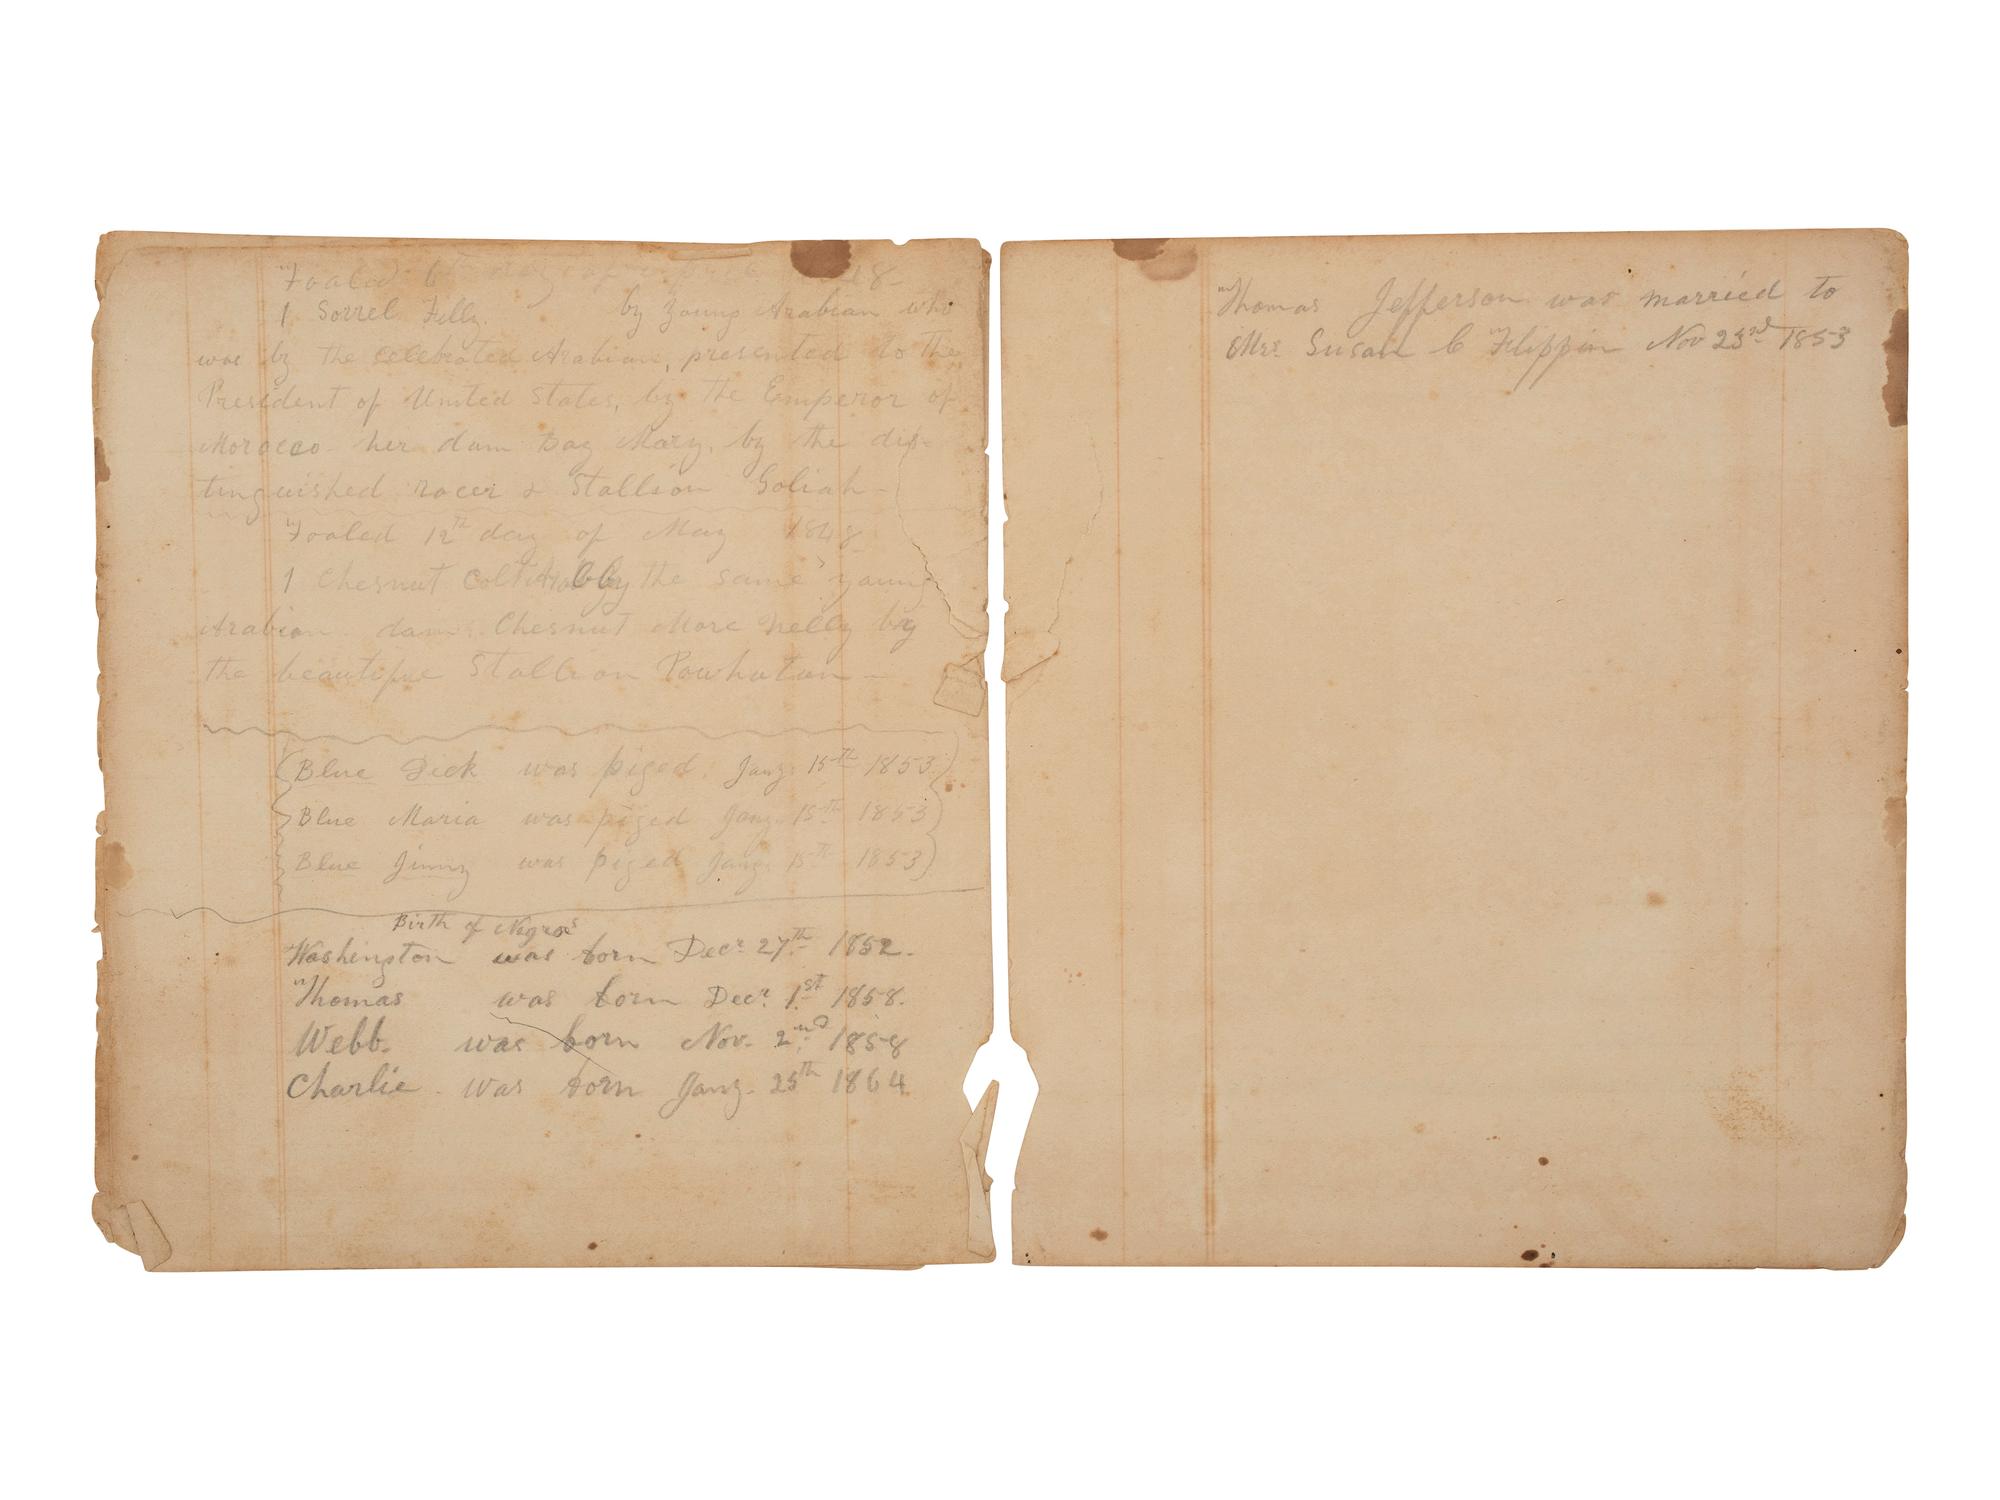 Foaled 6th day of 48-
1 Sorrel Filly. by young Arabian who
was by the celebrated Arabian, presented to the
President of United States, by the Emperor of
Morocco- her dam Bay Mary, by the dis-
tinguished racer & Stallion Goliah-
Foaled 12th day of May 1848
1 Chesnut Colt by the same young
Arabian dam Chesnut Mare Nelly by
the beautiful Stallion Powhatan-
Blue Dick was piged. Jany. 15th 1853
Blue Maria was piged Jany. 15th 1853
Blue Jinny was piged Jany. 15th 1853
Birth of Negroes
Washington was born Decr 27th 1852.
Thomas was born Decr. 1st 1858.
Webb. was born Nov. 2nd 1858
Charlie. was born Jany. 25th 1864
Thomas Jefferson was married to
Mrs Susan C Flippin Nov 23rd 1853